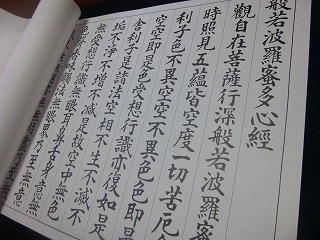 般若波羅蜜多心經
觀自在菩薩行深般若波羅蜜
時照見五蘊皆空度一切苦厄
利子色不異空空不異色色即
空空即是色受想行識亦復如是
舍利子是諸法空相不生不滅不
垢不淨不增不減是故空中無色
無受想行識無眼耳鼻舌身意